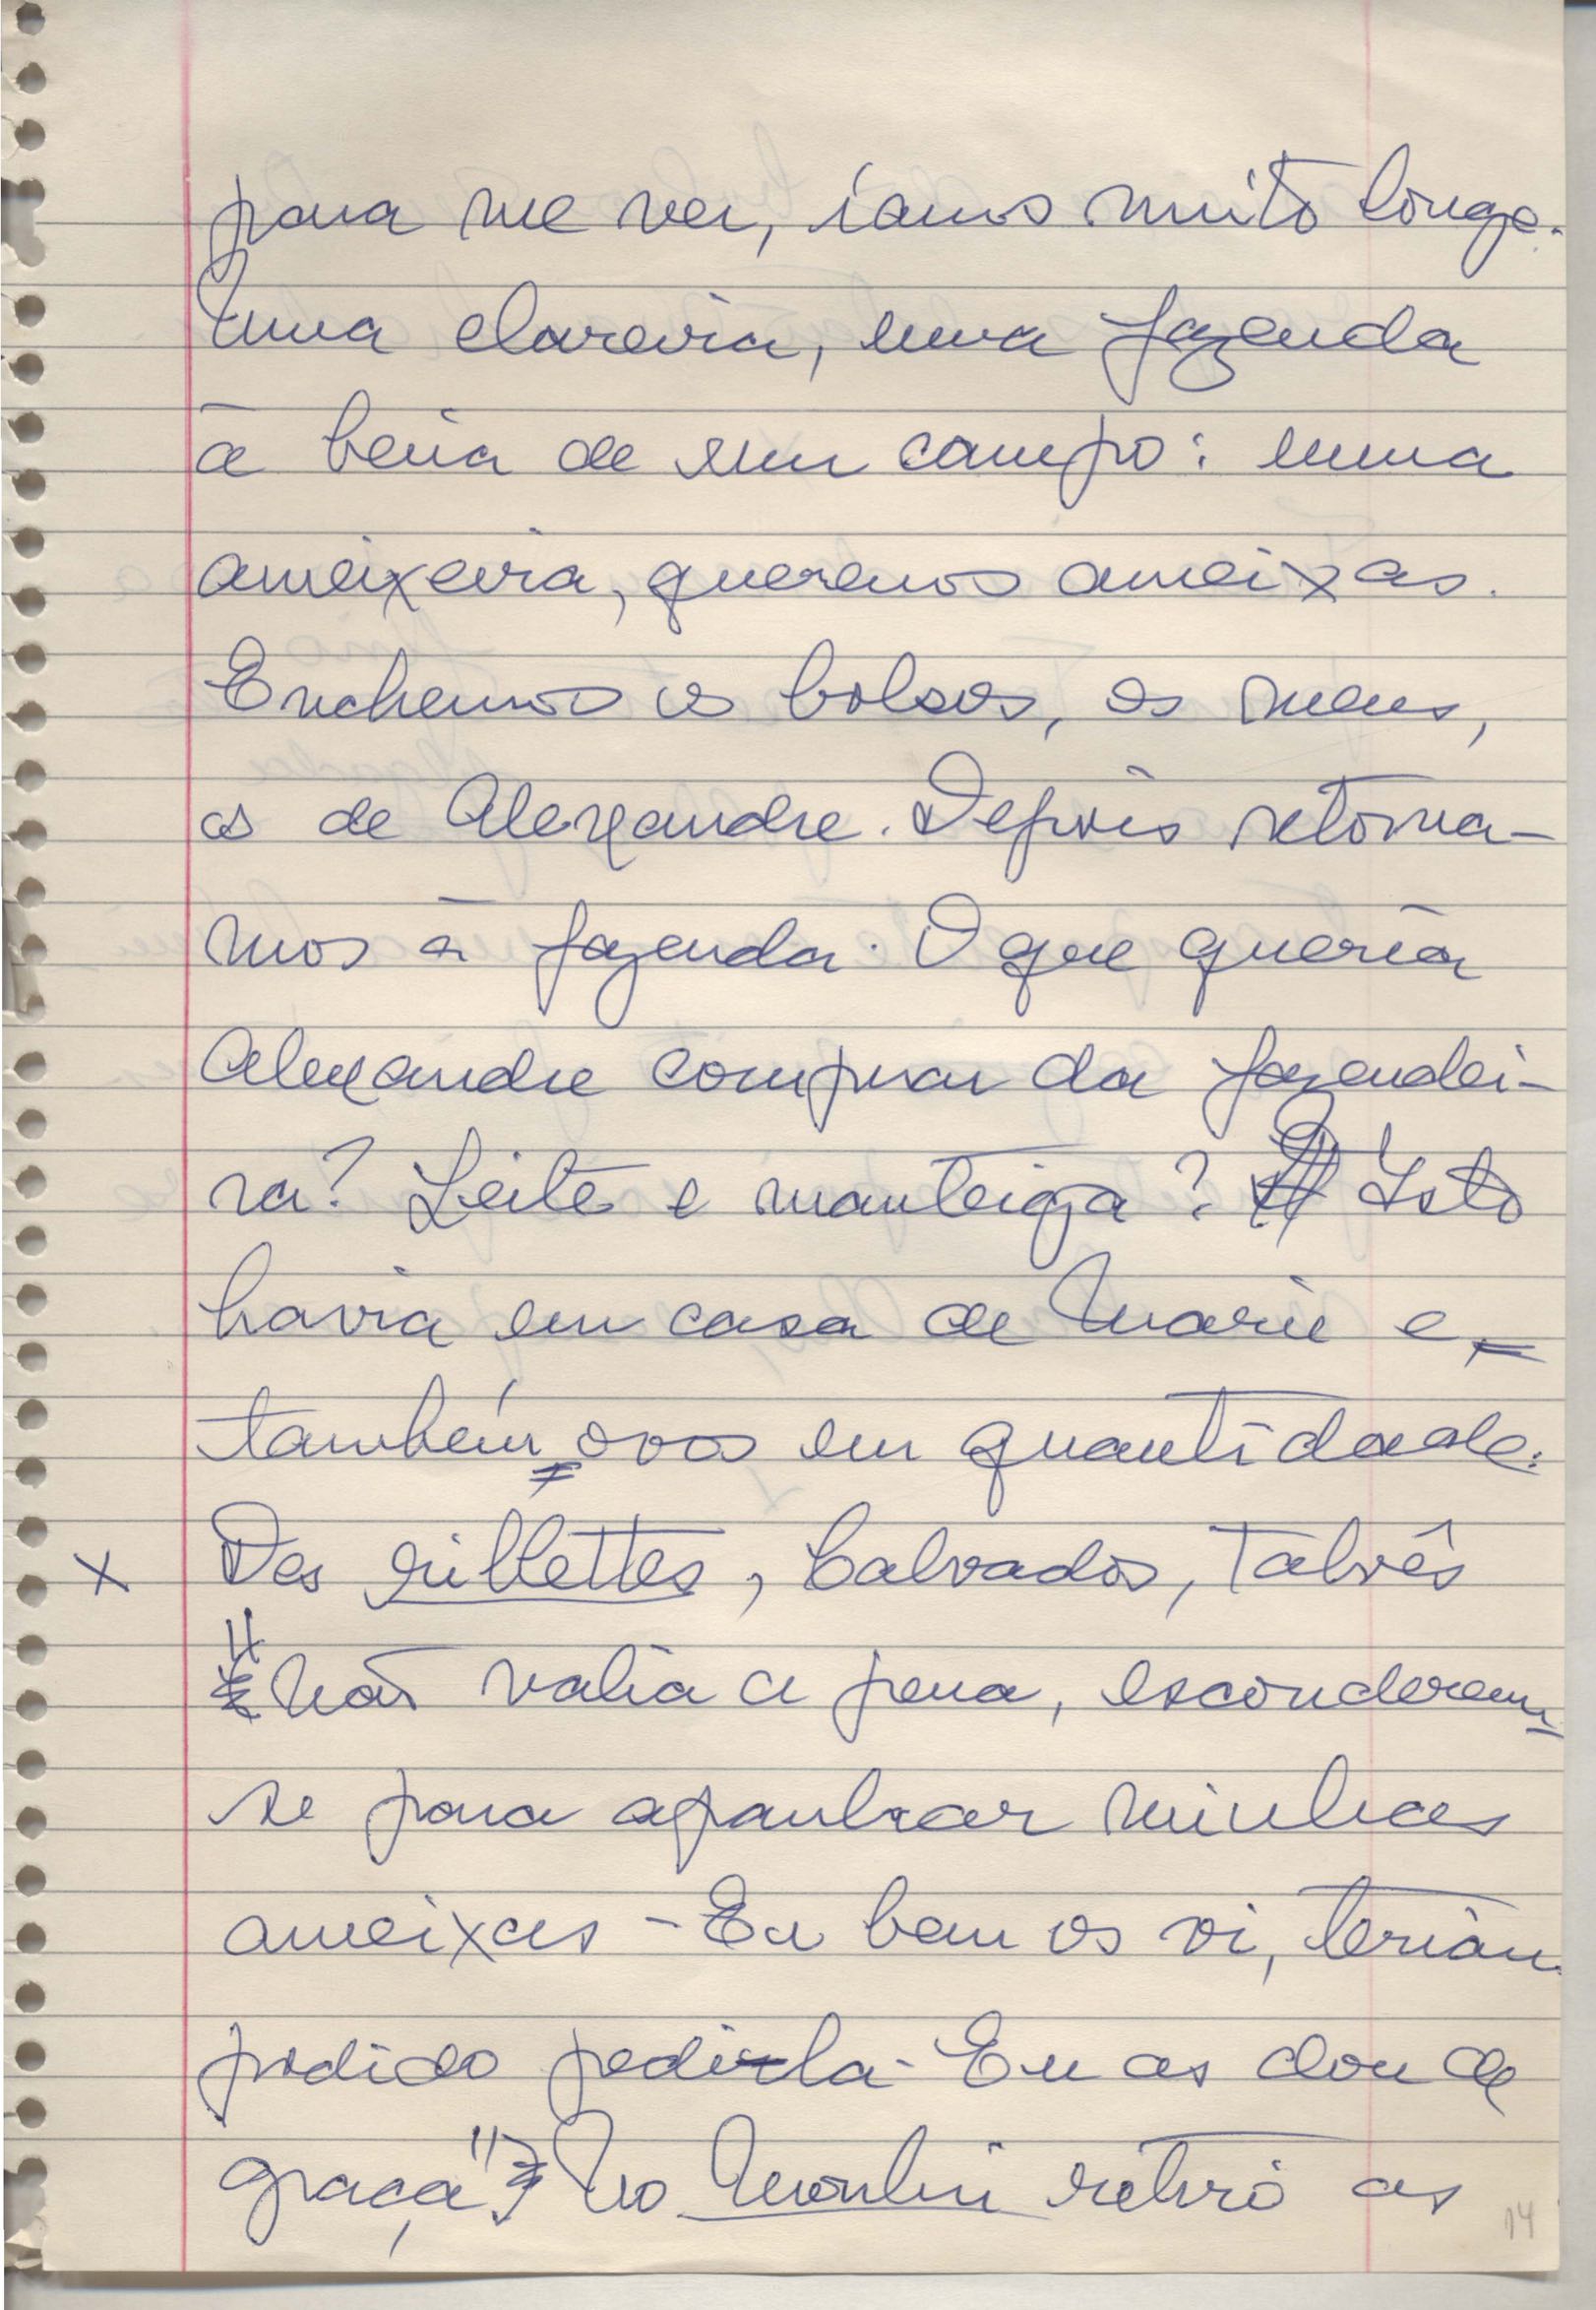 para me ver, íamos muito longe.
Uma clareira, uma fazenda
à beira de um campo: uma
ameixeira, queremos ameixas.
Enchemos os bolsos, os meus,
os de Alexandre. Depois retorna-
mos à fazenda. O que queria
Alexandre comprar da fazendei-
ra? Leite e manteiga? Isto
havia em casa de Marie e
também ovos em quantidade.
X Des rillettes, Calvados, talvês
"Não valia a pena, esconderem-
se para apanhar minhas
ameixas - Eu bem os vi, teriam
podido pedi-la - Eu as dou de
graça". No Moulin retiro as
14